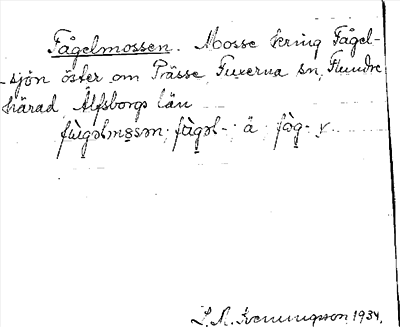 Fågelmossen. Mosse kring Fågel-
sjön öster om Prässe, Fuxerna sn, Flundre
härad Älfsborgs län
fågəlmosən. fågəl- ä fåg- v
L. A. Svenungsson, 1934.